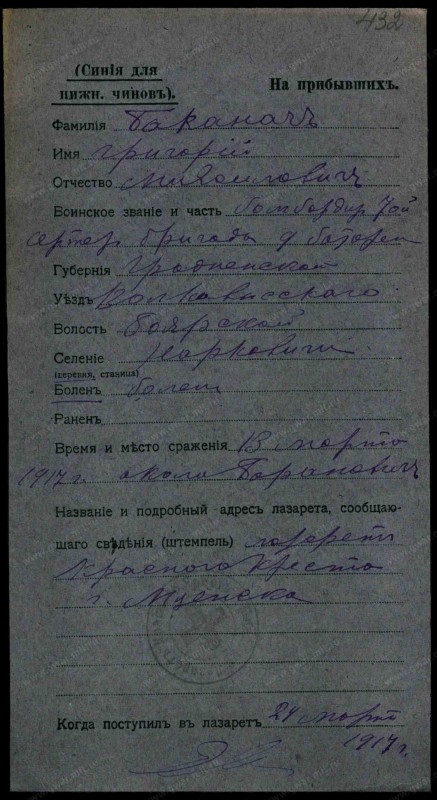 432
(Синія для
нижн. чиновъ).
На прибывшихъ.
Фамилія Баканачъ
Имя Григорій
Отчество Михайловичъ
Воинское званіе и часть бомбардир 7ой
артер. бригады 4 батареи
Губернія Гродненской
Уѣздъ Волковысскаго
Волость Боярской
Селеніе
(деревня, станица)
Боленъ болен
Раненъ
Время и мѣсто сраженія 13 марта
1917 г. около Барановичъ
Названіе и подробный адресъ лазарета, сообщаю-
щаго свѣдѣнія (штемпель) лазаретъ
Красного Креста
г. Мценска
Когда поступилъ въ лазаретъ 24 март
1917 г.